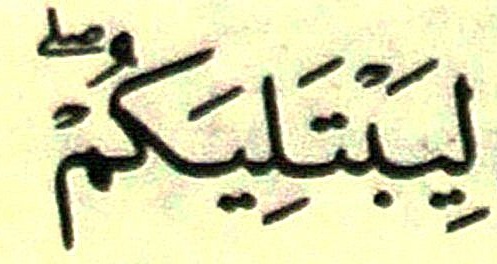 لِيَبْتَلِيَكُمْۖ